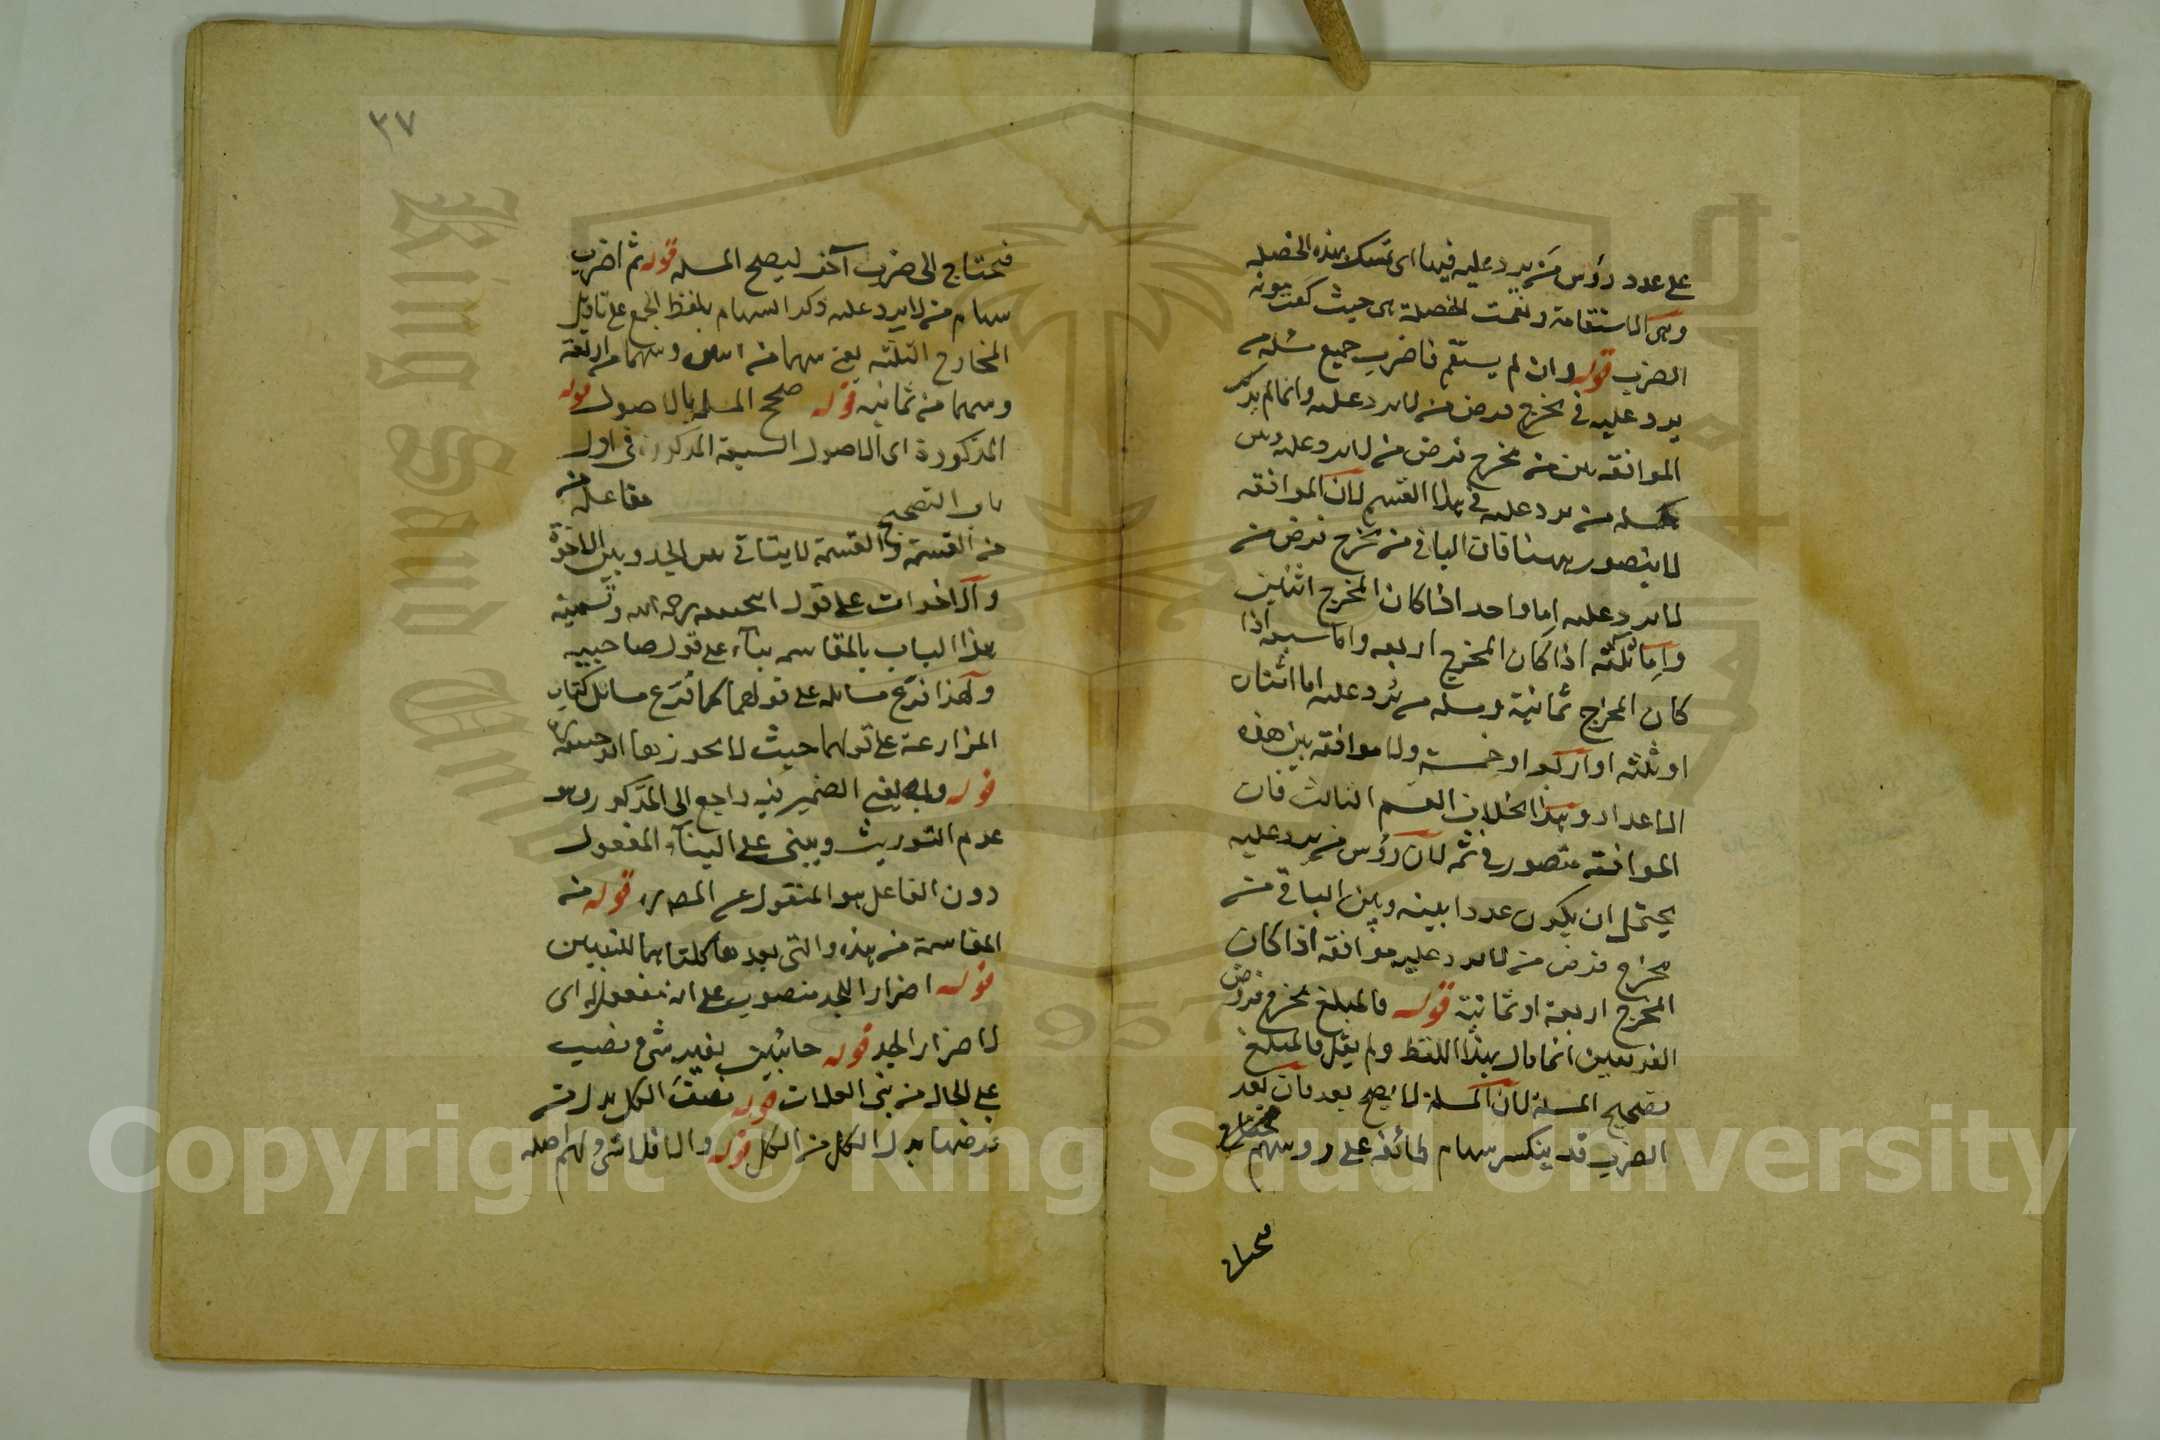 على عدد رؤس من يرد عليه فيها اى تمسك بهذه الخصلة
وهى الاستقامة ونعمت الخصلة هى حيث كفت مؤنة
الضرب قوله وان لم يستقم فاضرب جميع مسئلة من
يرد عليه فى مخرج فرض من لا يرد عليه وانما لم يذكر
الموافقة بين مخرج فرض من لا يرد عليه وبين
مسئلة من يرد عليه فى هذا القسم لان الموافقة
لا يتصور ههنا فان الباقى من مخرج فرض من
لا يرد عليه اما واحد اذا كان المخرج اثنين
واما ثلثة اذا كان المخرج اربعه واما سبعه اذا
كان المخرج ثمانية ومسئلة من يرد عليه اما اثنان
او ثلثه او اربعة او خمسة ولا موافقة بين هذه
الاعداد وهذا بخلاف القسم الثالث فان
الموافقة متصور فى ثمه لان رؤس من يرد عليه
يحتمل ان يكون عددا بينه وبين الباقى من
مخرج فرض من لا يرد عليه موافقة اذا كان
المخرج اربعة او ثمانية قوله فالمبلغ مخرج فروض
الفريقين انما قال بهذا اللفظ ولم يقل فالمبلغ
تصحيح المسئلة لان المسئلة لا يصح بعد فان بعد
الضرب قد ينكسر سهام طائفة على روسهم فيحتاج
فيحتاج
٣٧
فيحتاج الى ضرب آخر ليصح المسئلة قوله ثم اضرب
سهام من لا يرد عليه ذكر السهام بلفظ الجمع على تاويل
المخارج الثلثه يعنى سهما من اثنين وسهما من اربعة
وسهما من ثمانيه قوله صحح المسئلة بالاصول قوله
المذكورة اى الاصول السبعة المذكورة فى اول
باب التصحيح مفاعلة من
من القسمة والقسمة لا يتاتى بين الجد وبين الاخوة
والاخوات على قول ابى حنيفه رحمه الله وتسمية
هذا الباب بالمقاسمه بناء على قول صاحبيه
ولهذا فرع مسائله على قولهما كما فرع مسائل كتاب
المزارعة على قولهما حيث لا يجوزها ابو حنيفة
قوله وبه يفتى الضمير فيه راجع الى المذكور وهو
عدم التوريث ويبنى على البناء المفعول
دون الفاعل هو المنقول عن المص قوله من
المقاسمة من هذه والتى بعدها كلتاهما للتبيين
قوله اضرارا للجد منصوب على انه مفعول له اى
لاضرار الجد قوله خائبين بغير شئ نصب
على الحال من بنى العلات قوله نصف الكل بدل من
فرضها بدل الكل من الكل قوله والا فلا شئ لهم اصله